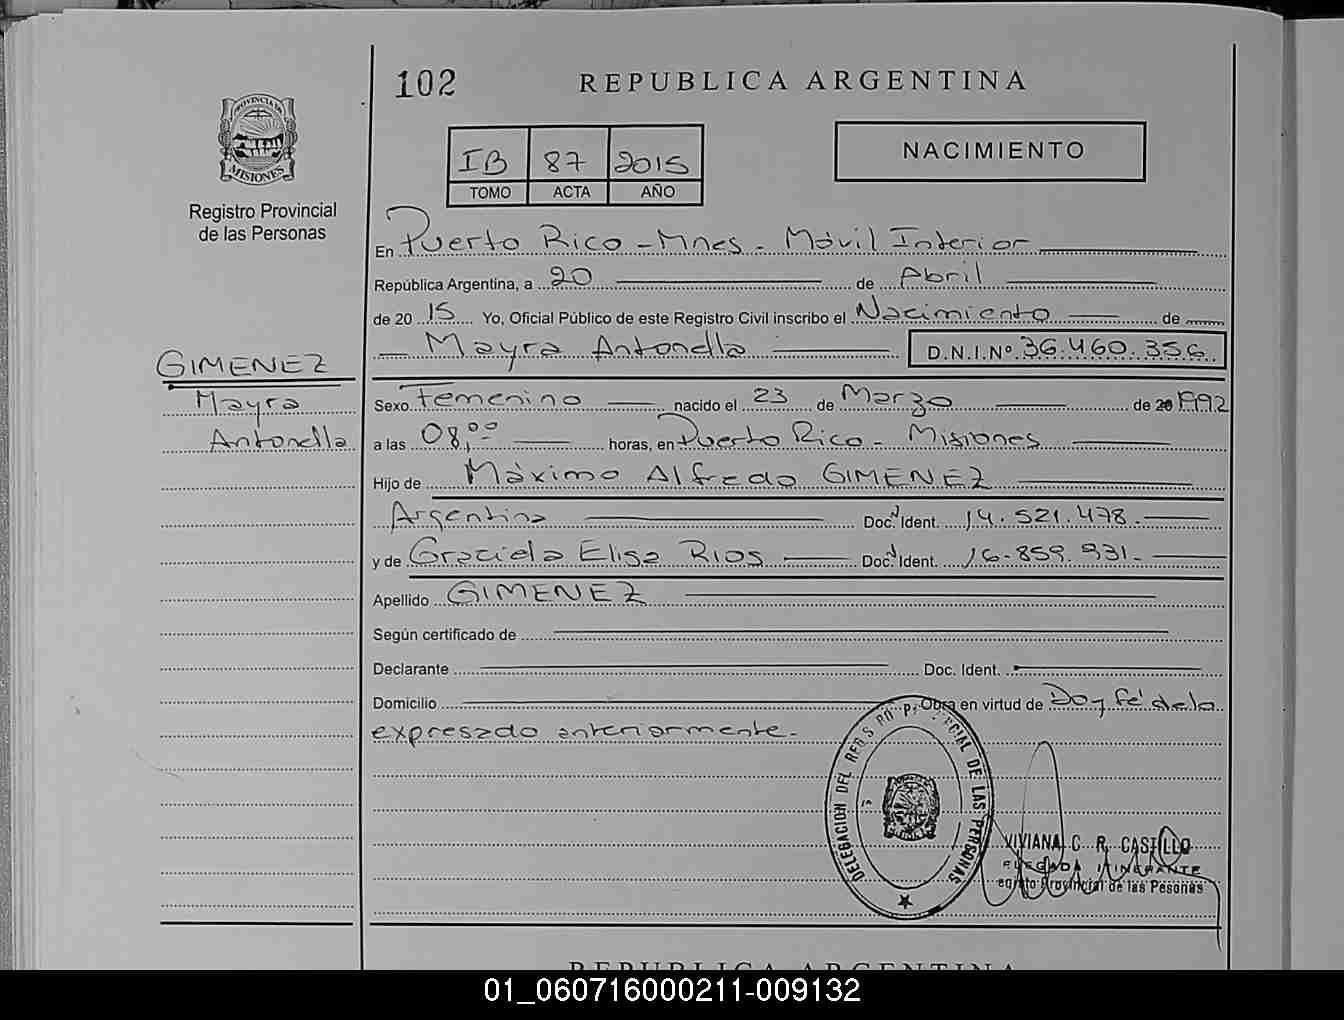 102
REPUBLICA ARGENTINA
PROVINCIA DE
MISIONES
Registro Provincial
de las Personas
IB 87 2015
TOMO ACTA AÑO
NACIMIENTO
En Puerto Rico - Mnes - Móvil Interior
República Argentina, a 20 de Abril
de 20 15 Yo, Oficial Público de este Registro Civil inscribo el Nacimiento de
Mayra Antonella D.N.I.Nº 36.460.356
GIMENEZ
Mayra
Antonella
Sexo Femenino nacido el 23 de Marzo de 20 1992
a las 08,00 horas, en Puerto Rico - Misiones
Hijo de Máximo Alfredo GIMENEZ
Argentina Doc. Ident. 14.521.478.
y de Graciela Elisa RIOS Doc. Ident. 16.859.931.
Apellido GIMENEZ
Según certificado de
Declarante Doc. Ident.
Domicilio Obra en virtud de Doy fé de lo
expresado anteriormente.
DELEGACION DEL DE LAS PERSONAS
VIVIANA C. R. CASTILLO
ITINERANTE
Provincial de las Pesonas
REPUBLICA ARGENTINA
01_060716000211-009132